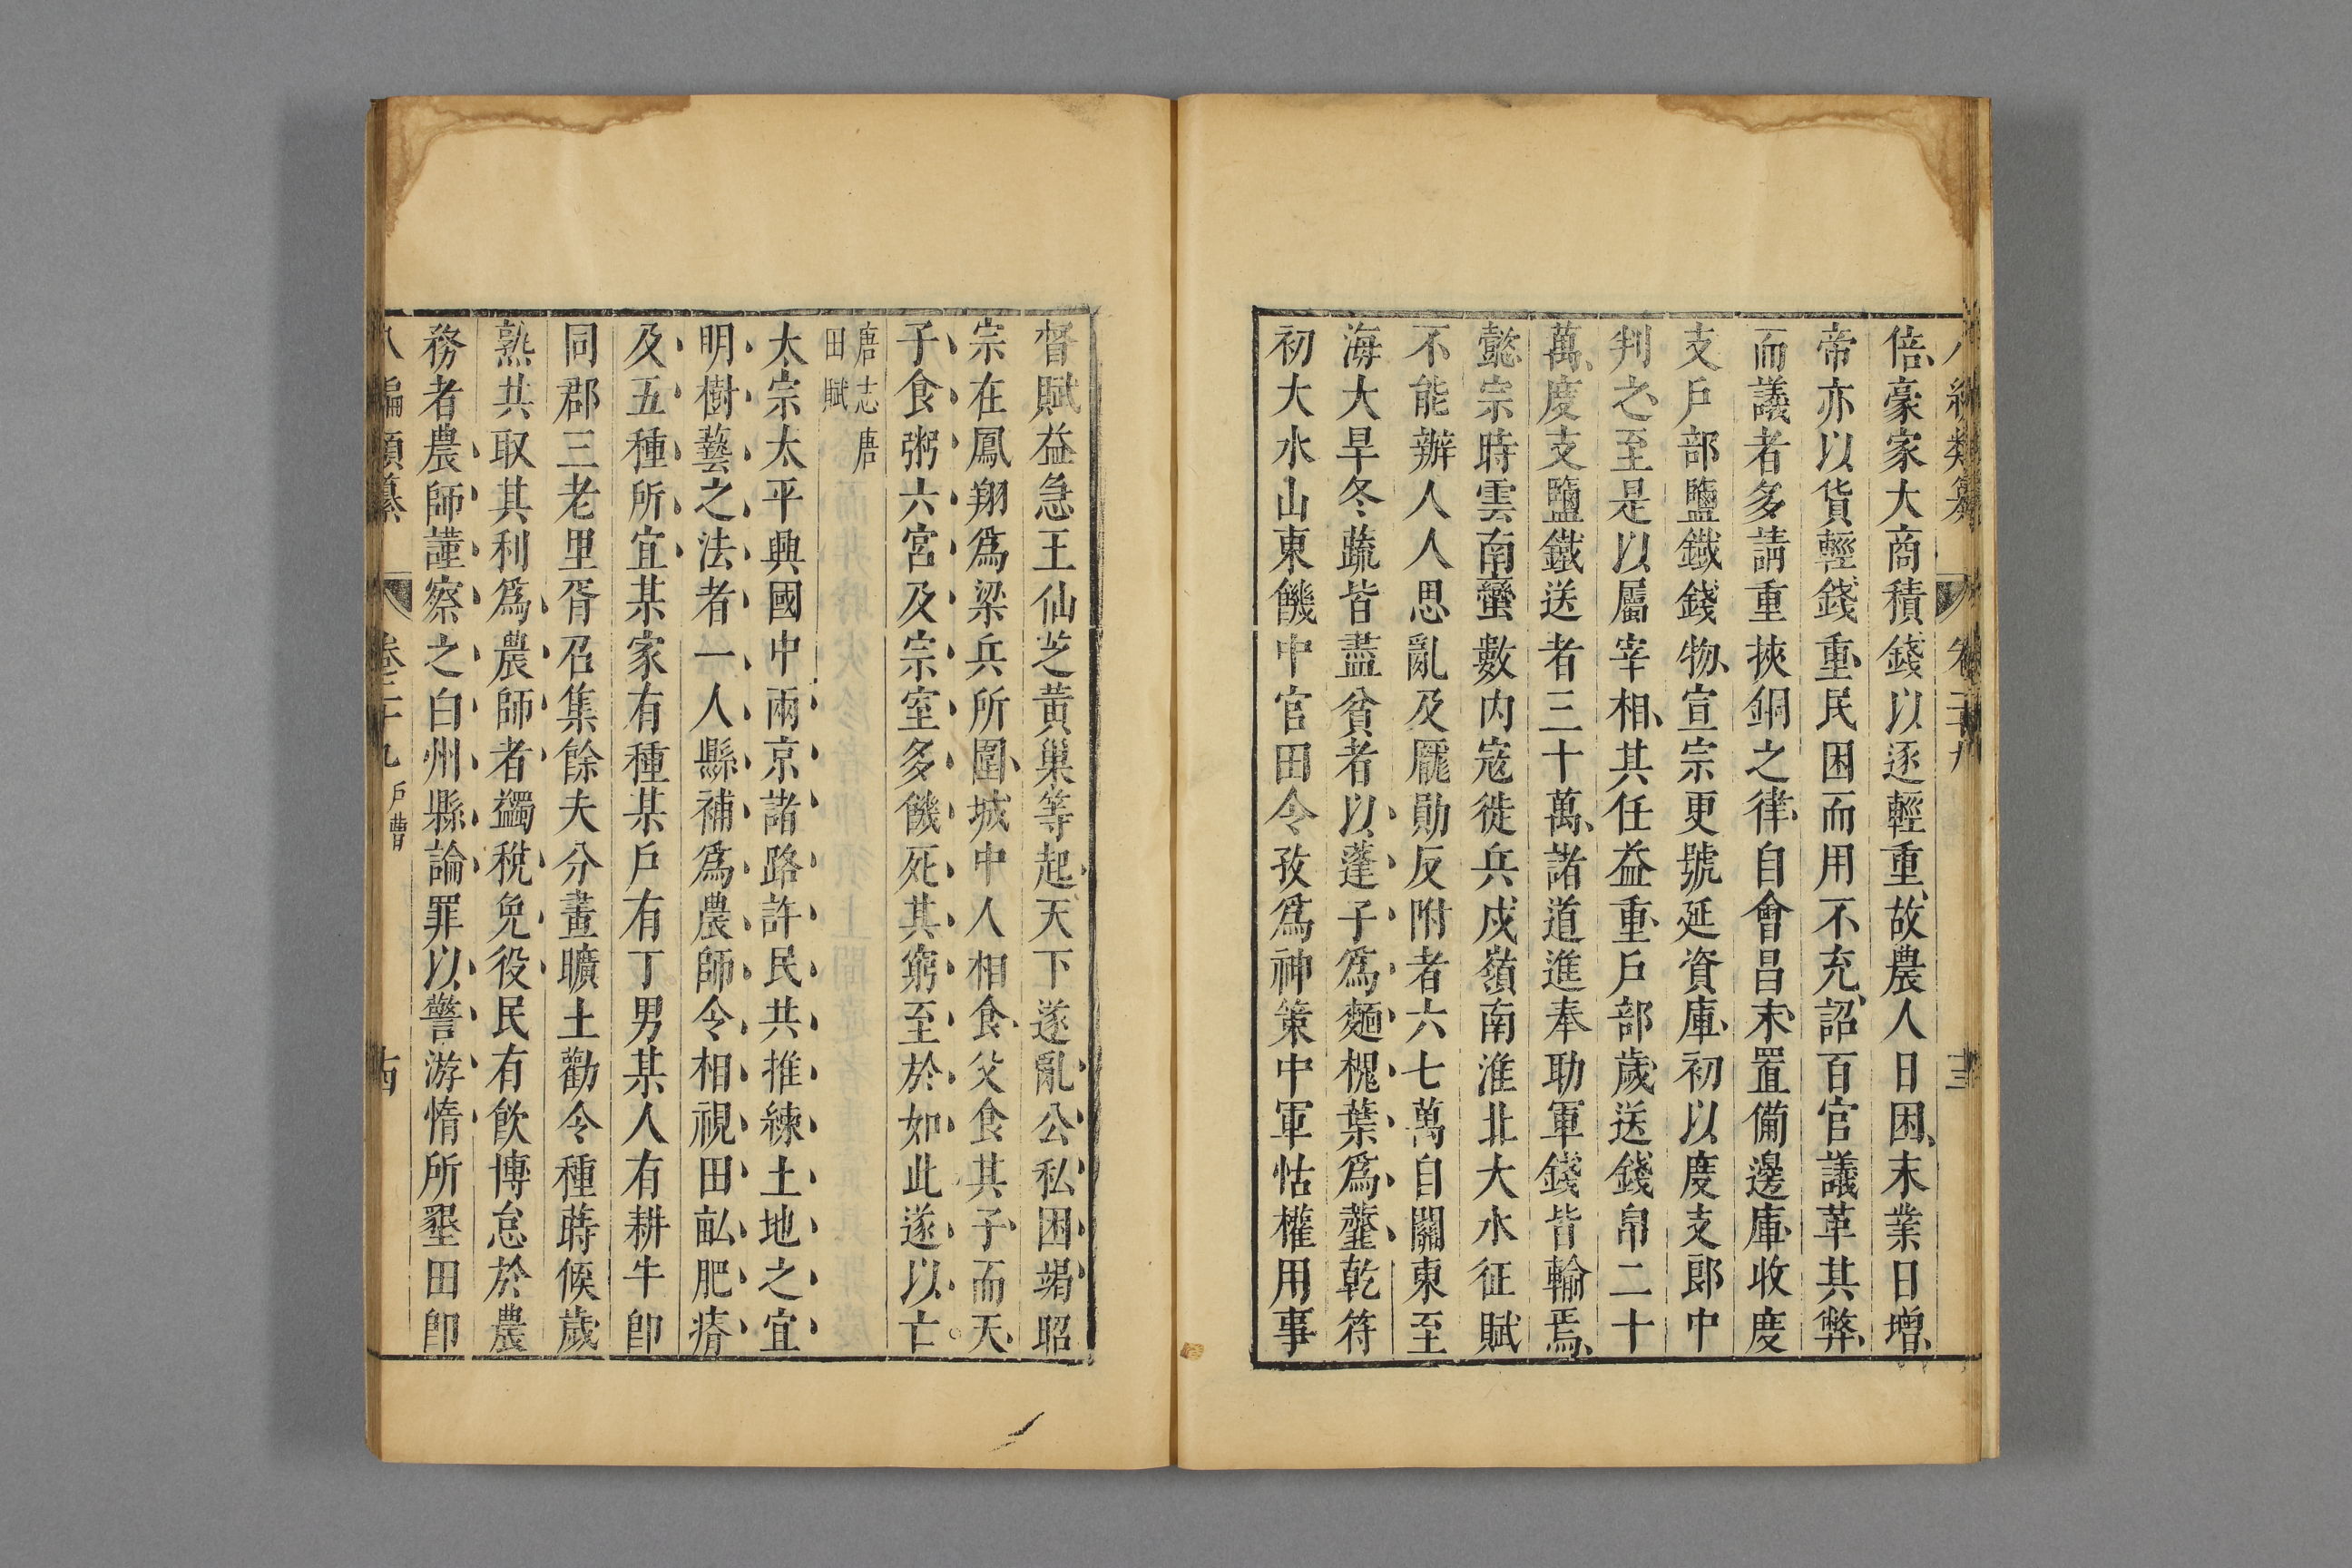 八編類纂 卷二十九 十三
倍豪家大商積錢以逐輕重故農人日困末業日增
帝亦以貨輕錢重民困而用不充詔百官議革其弊
而議者多請重挾銅之律自會昌末置備邊庫收度
支戶部鹽鐵錢物宣宗更號延資庫初以度支郎中
判之至是以屬宰相其任益重戶部歲送錢帛二十
萬度支鹽鐵送者三十萬諸道進奉助軍錢皆輸焉
懿宗時雲南蠻數內寇徙兵戍嶺南淮北大水征賦
不能辦人人思亂及龐勛反附者六七萬自關東至
海大旱冬蔬皆盡貧者以蓬子爲麵槐葉爲虀乾符
初大水山東饑中官田令孜爲神策中軍怙權用事
督賦益急王仙芝黃巢等起天下遂亂公私困竭昭
宗在鳳翔爲梁兵所圍城中人相食父食其子而天
子食粥六宮及宗室多餓死其窮至於如此遂以亡
唐志唐
田賦
太宗太平興國中兩京諸路許民共推練土地之宜
明樹藝之法者一人縣補爲農師令相視田畝肥瘠
及五種所宜某家有種某戶有丁男某人有耕牛卽
同郡三老里胥召集餘夫分畫曠土勸令種蒔候歲
熟共取其利爲農師者蠲稅免役民有飲博怠於農
務者農師謹察之白州縣論罪以警游惰所墾田卽
八編類纂 卷二十九 戶曹 十四